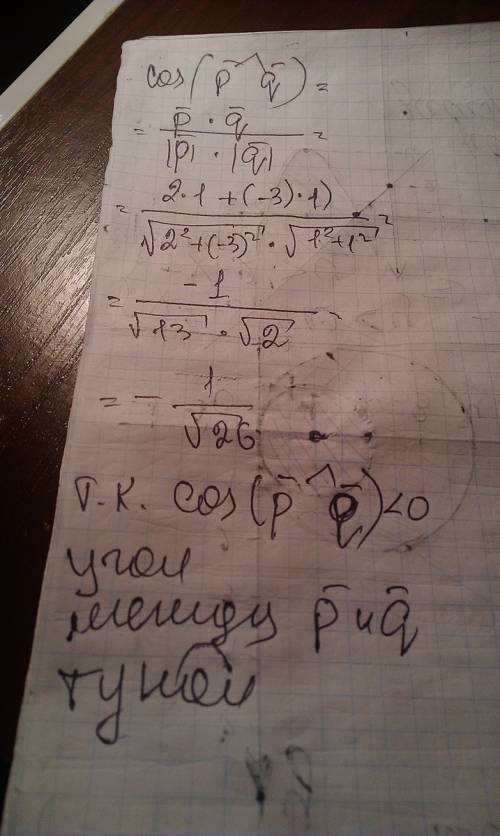 cos(p̄ ^ q̄) =
= p̄ · q̄ / |p̄| · |q̄| =
= 2·1 + (-3)·1) / √2²+(-3)² · √1²+1² =
= -1 / √13 · √2 =
= - 1 / √26
т.к. cos(p̄ ^ q̄) < 0
угол
между p̄ и q̄
тупой